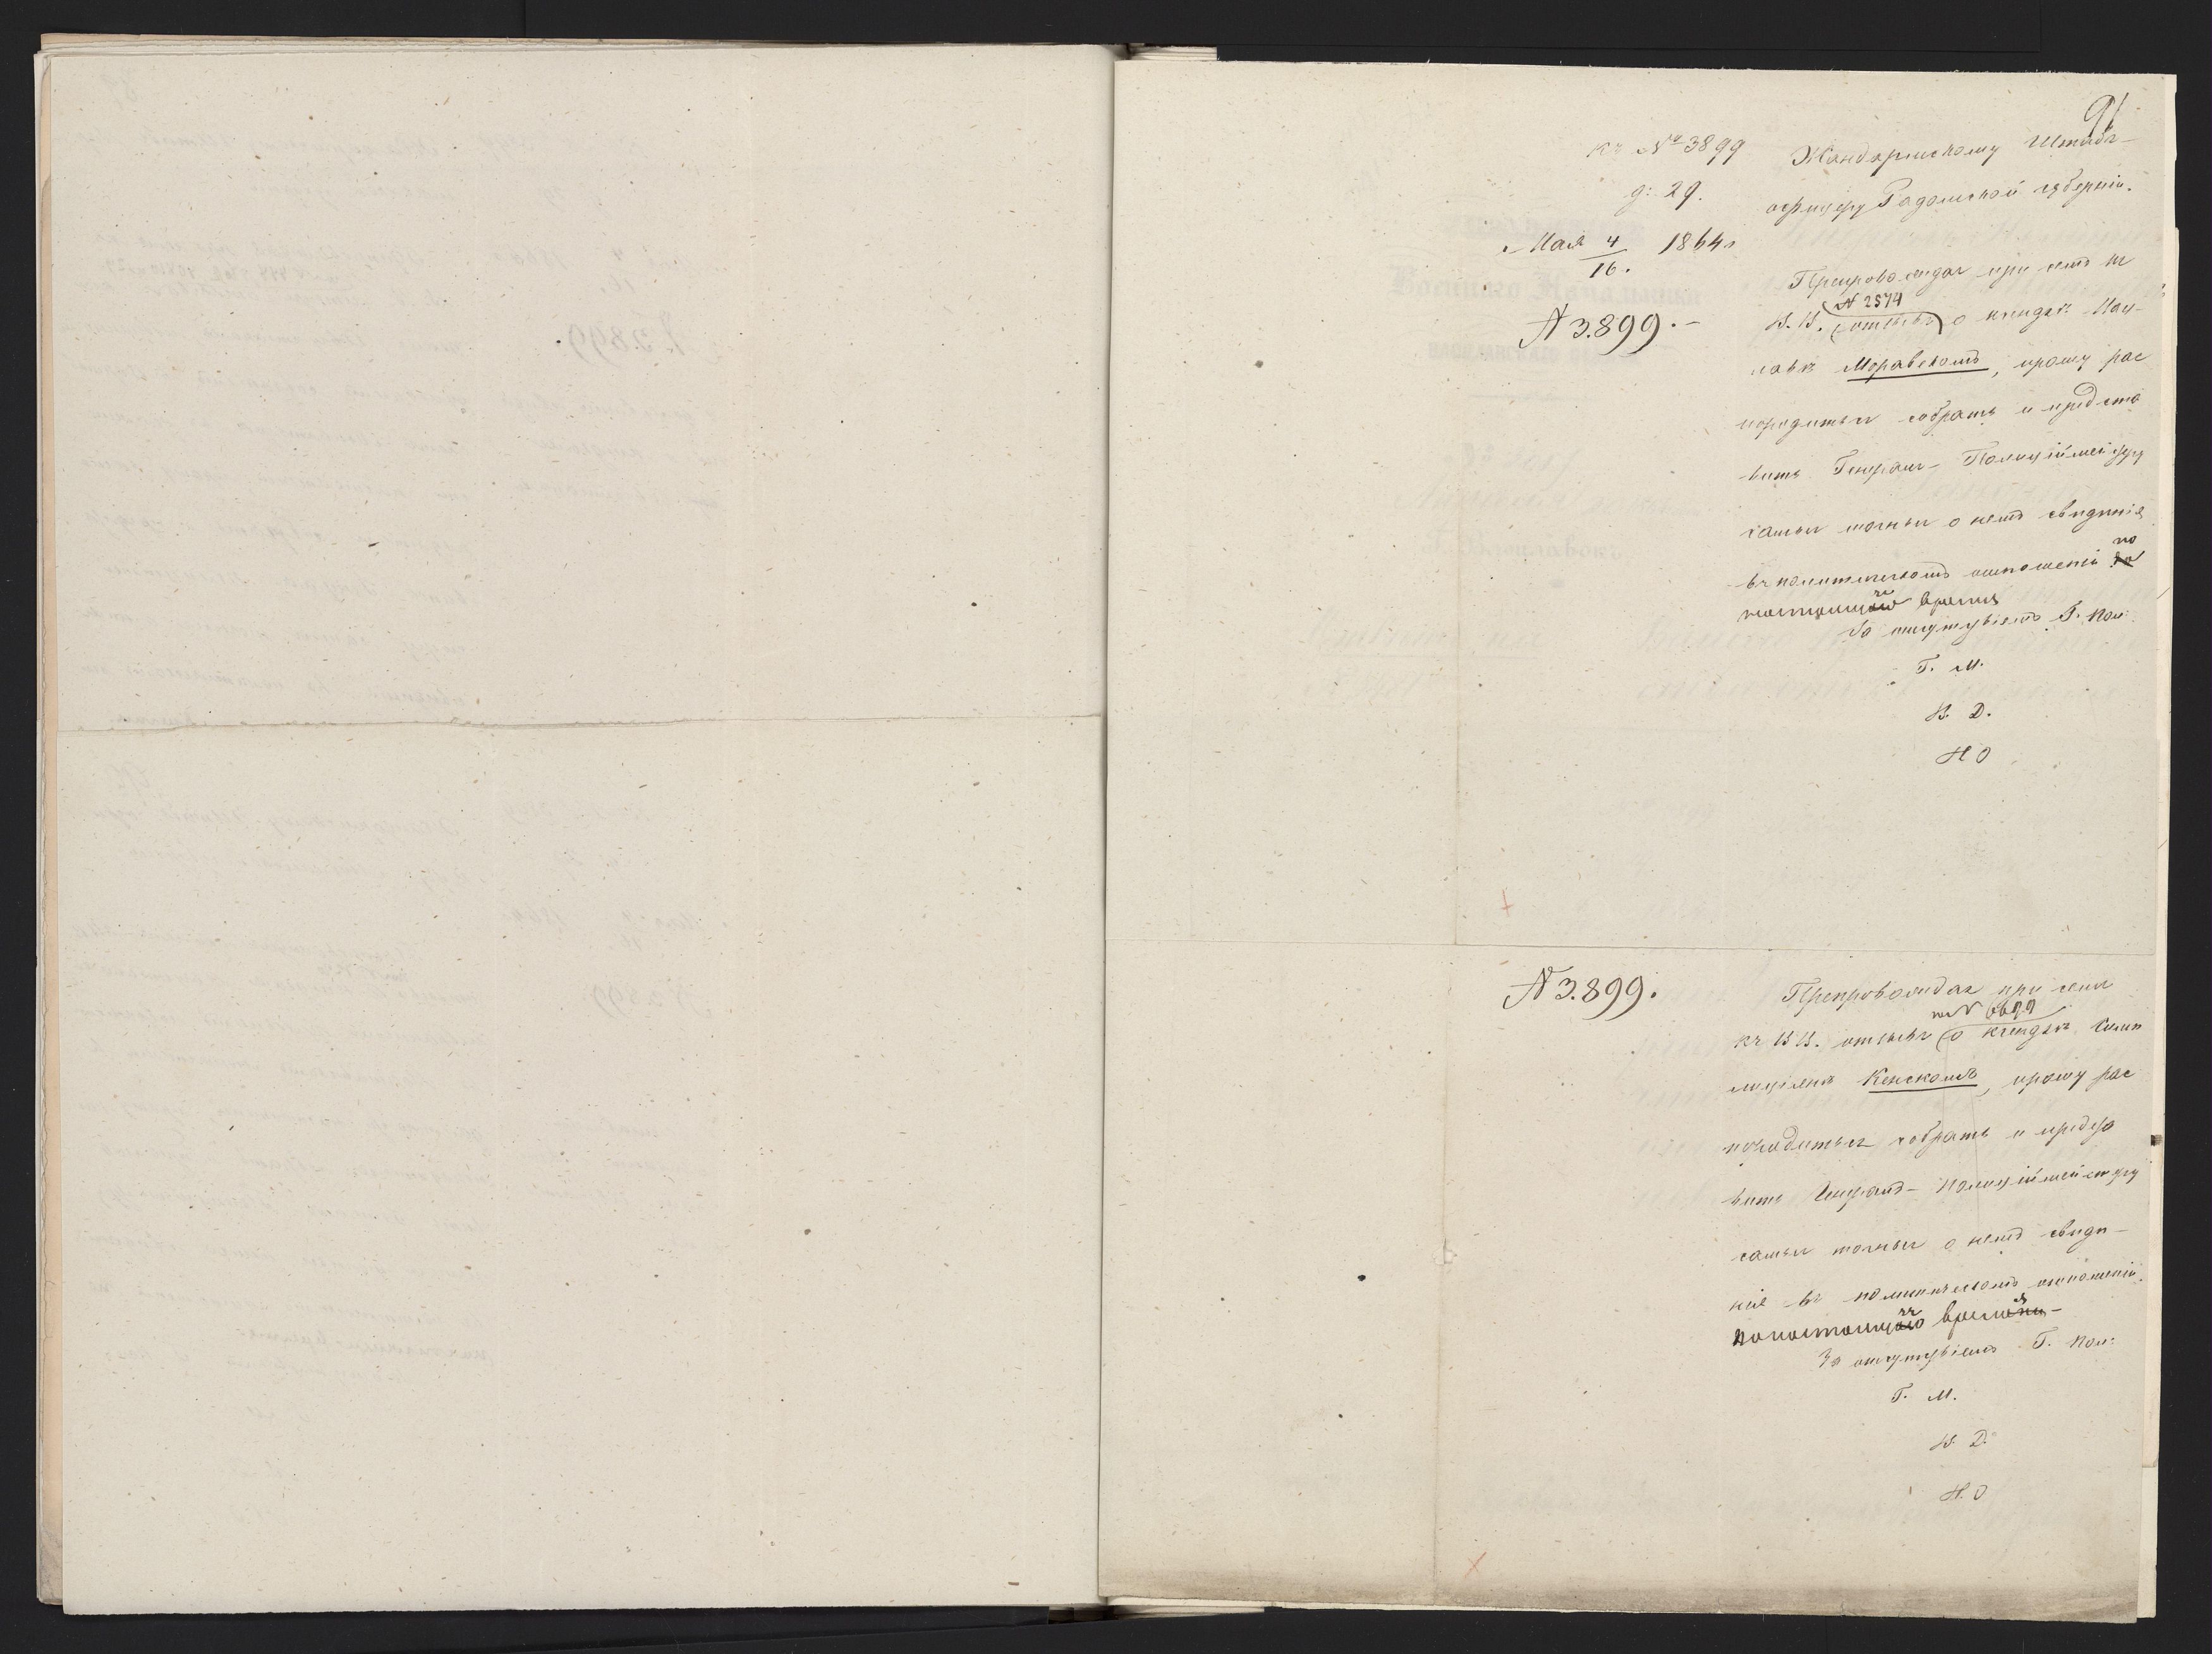 91
къ № 3899
д: 29.
Мая 4/16. 1864 г
№ 3.899.
Жандармскому Штабъ-
офицеру Радомской губерніи.
Препровождая при семъ къ
В. В. отзывъ № 2574 о ксендзѣ
Моравскомъ, прошу рас
порядиться собрать и предста
вить Генералъ-Полиціймейстеру
самыя точныя о немъ свѣдѣнія
въ политическомъ отношеніи по
настоящее время
За отсутствіемъ Г. Пол:
Г. М.
В. Д.
Н О
№ 3.899.
Препровождая при семъ
къ В В. отзывъ о ксендзѣ
Кенскомъ, прошу рас
порядиться собрать и предста
вить Генералъ-Полиціймейстеру
самыя точныя о немъ свѣдѣ-
нія въ политическомъ отношеніи
по настоящее время
За отсутствіемъ Г. Пол:
Г. М.
В. Д.
Н. О